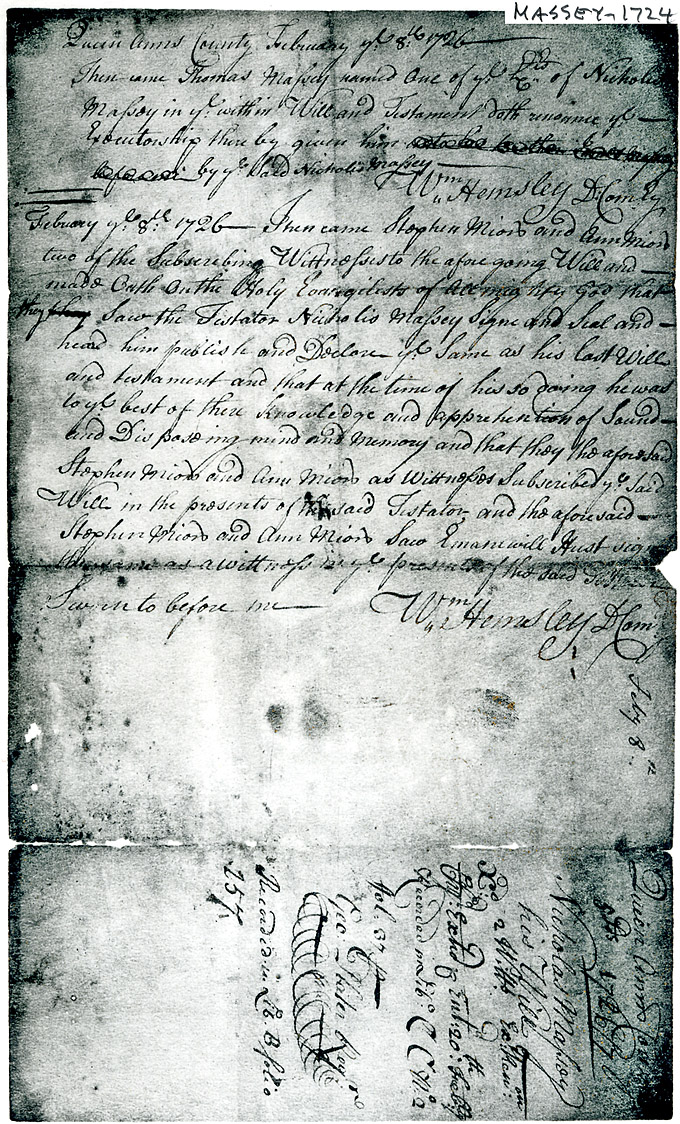 MASSEY-1724
Queen Anns County February ye 8th 1726
Then came Thomas Massey named One of ye Exrs of Nicholis
Massey in ye within Will and Testament doth renounce ye
Executorship there by given him
by ye said Nicholis Massey
Wm Hemsley D Com ry
February ye 8th 1726 Then came Stephen Miors and Ann Miors
two of the Subscribing Wittnessis to the afore going Will and
made Oath on the Holy Evangilists of Allmighty God that
they Saw the Tistator Nicholis Massey Signe and Seal and
heard him publish and Declare ye Same as his last Will
and testament and that at the time of his so doing he was
to ye best of there Knowledge and apprehention of Sound
and Disposeing mind and Memory and that they the aforesaid
Stephen Miors and Ann Miors as Wittneses Subscribed ye Said
Will in the presents of the said Tistator and the aforesaid
Stephen Miors and Ann Miors Saw Emanewill Hust sign
the same as a wittness in ye presents of the said Tistator
Sworn to before me Wm Hemsley D Com
Feby 8th
Queen Anns County
1726
Nicholas Massey
his Will
2 Witts
Exhd
Recorded in Lib. C C No 2
fol. 37
Regr
Recorded in Lib B folio
257